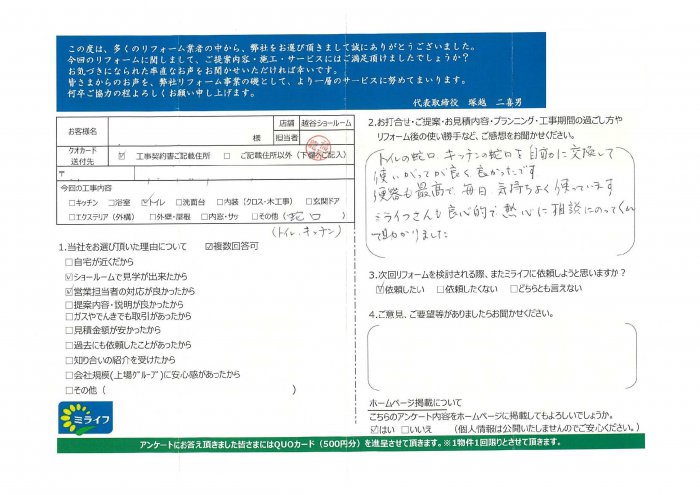 この度は、多くのリフォーム業者の中から、弊社をお選び頂きまして誠にありがとうございました。
今回のリフォームに関しまして、ご提案内容・施工・サービスにはご満足頂けましたでしょうか?
お気づきになられた率直なお声をお聞かせいただければ幸いです。
皆さまからのお声を、弊社リフォーム事業の礎として、より一層のサービスに努めてまいります。
何卒ご協力の程よろしくお願い申し上げます。
代表取締役 塚越 二喜男
お客様名
様
店舗 越谷ショールーム
担当者
クオカード
送付先
☑ 工事契約書ご記載住所 □ ご記載住所以外(下欄へご記入)
今回の工事内容
□キッチン □浴室 ☑トイレ □洗面台 □内装(クロス・木工事) □玄関ドア
□エクステリア(外構) □外壁・屋根 □内窓・サッシ □その他( 蛇口 )
(トイレ、キッチン)
1.当社をお選び頂いた理由について ☑複数回答可
□自宅が近くだから
☑ショールームで見学が出来たから
☑営業担当者の対応が良かったから
□提案内容・説明が良かったから
□ガスやでんきでも取引があったから
□見積金額が安かったから
□過去にも依頼したことがあったから
□知り合いの紹介を受けたから
□会社規模(上場グループ)に安心感があったから
□その他( )
ミライフ
2.お打合せ・ご提案・お見積内容・プランニング・工事期間の過ごし方や
リフォーム後の使い勝手など、ご感想をお聞かせください。
トイレの蛇口、キッチンの蛇口を自動に交換して
使いがってが良く良かったです
便器も最高で毎日気持ちよく使っています
ミライフさんも良心的で熱心に相談にのってくれ
助かりました
3.次回リフォームを検討される際、またミライフに依頼しようと思いますか?
☑依頼したい □依頼したくない □どちらとも言えない
4.ご意見、ご要望等がありましたらお聞かせください。
ホームページ掲載について
こちらのアンケート内容をホームページに掲載してもよろしいでしょうか。
☑はい □いいえ (個人情報は公開いたしませんのでご安心ください。)
アンケートにお答え頂きました皆さまにはQUOカード(500円分)を進呈させて頂きます。※1物件1回限りとさせて頂きます。